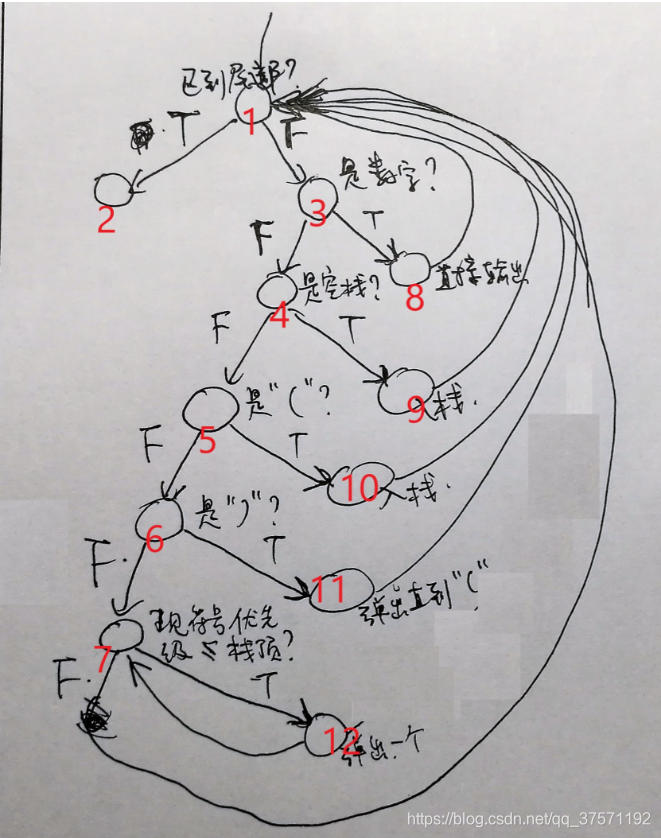 已到尾部?
T
1
F
2
是数字?
3
T
F
8
直接输出
是空栈?
4
F
T
9
入栈.
是"("?
5
F
T
10
入栈.
是")"?
6
F.
T
11
弹出直到"("
现符号优先
级≤栈顶?
7
F.
T
12
弹出一个
https://blog.csdn.net/qq_37571192